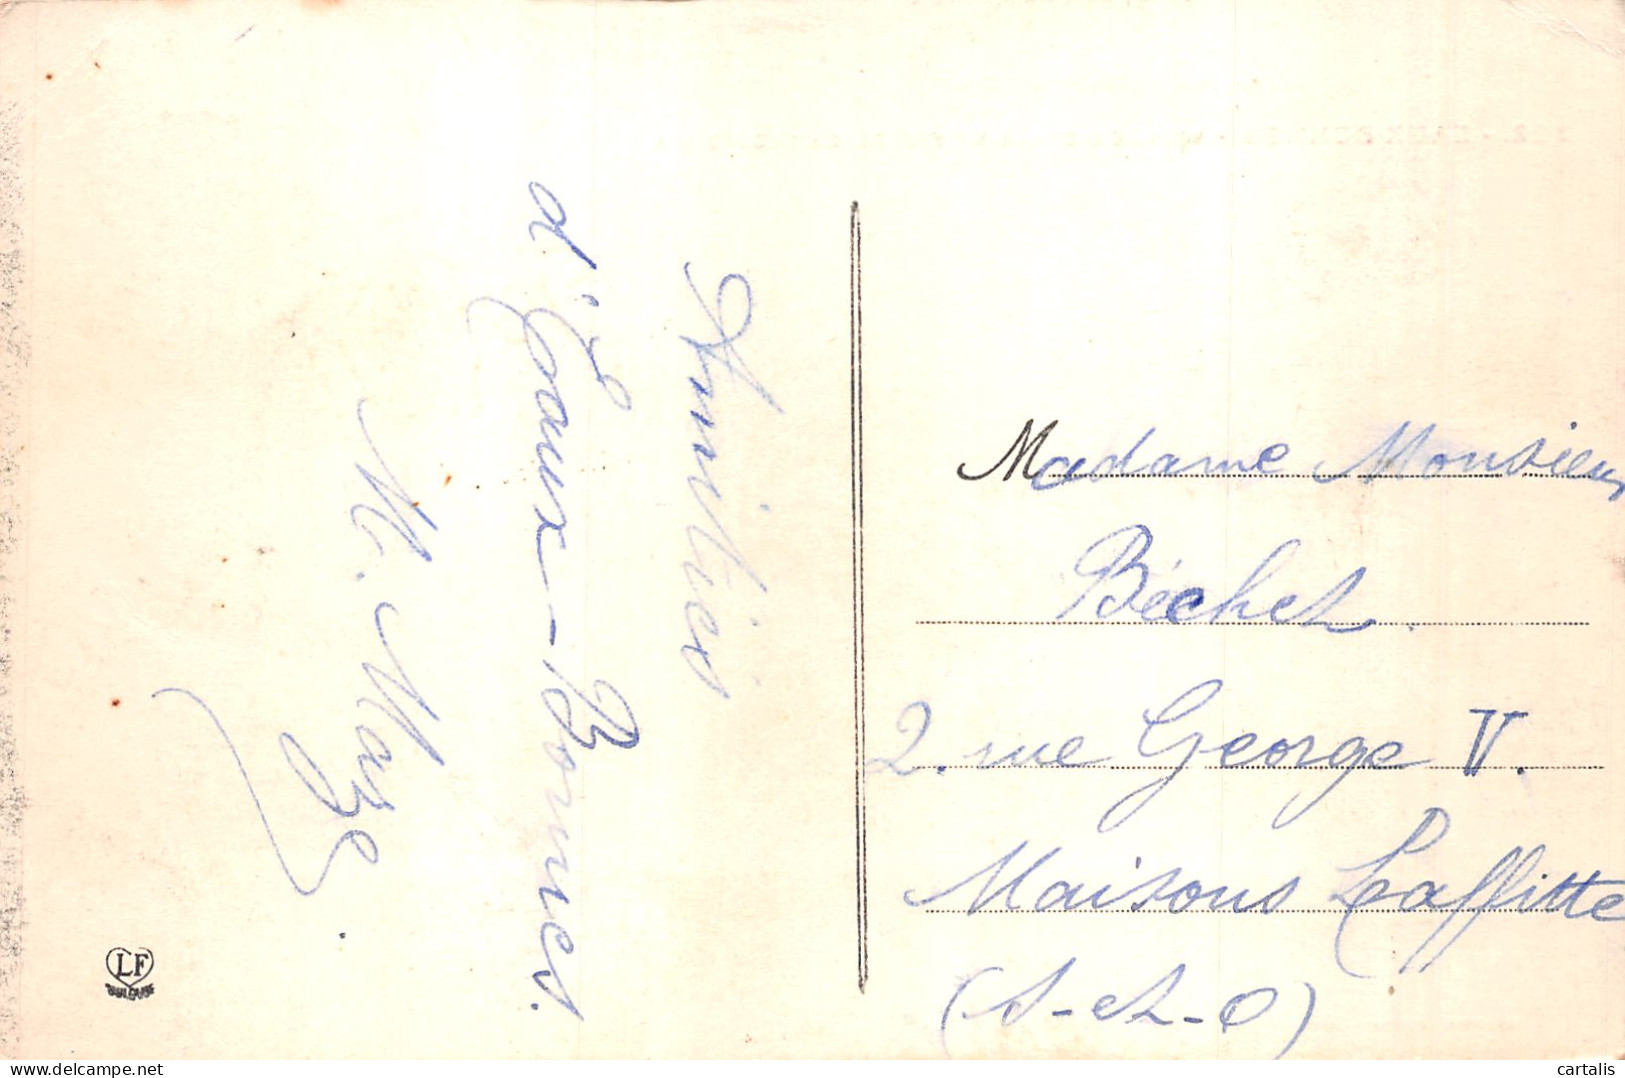 Amitiés
d'Eaux-Bonnes.
M. Maze
Madame Monsieur
Béchet.
2. rue George V.
Maisons Laffitte
(S-et-O)
LF
TOULOUSE
delcampe.net
cartalis